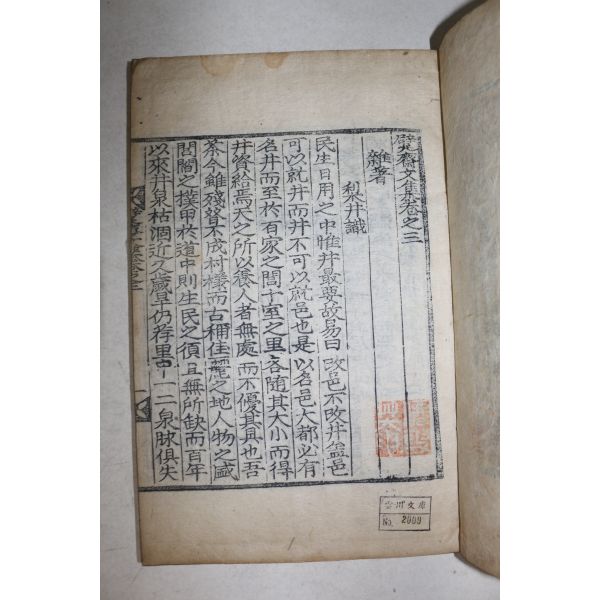 齋文集卷之三
雜著
梨井識
民生日用之中惟井最要故易曰改邑不改井盖邑
可以就井而井不可以就邑也是以名邑大都必有
名井而至於百家之閭十室之里各隨其大小而得
井資給焉天之所以養人者無處而不優其具也吾
泰今雖殘替不成村樣而古稱佳麗之地人物之盛
閭閻之撲甲於道中則生民之湏且無所缺而百年
以來井泉枯涸近又歲旱仍存里中一二泉脉俱失
雲川文庫
No. 2009